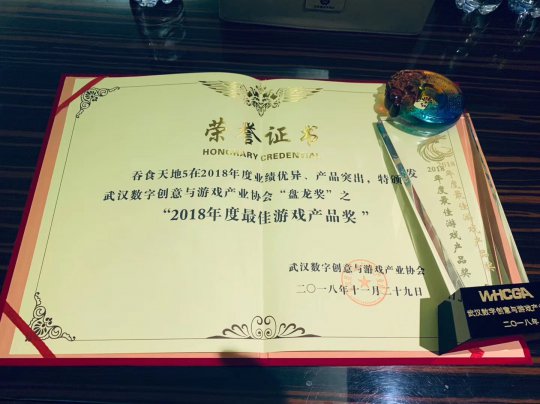 荣誉证书
HONORARY CREDENTIAL
吞食天地5在2018年度业绩优异、产品突出，特颁发
武汉数字创意与游戏产业协会“盘龙奖”之
“2018年度最佳游戏产品奖”
武汉数字创意与游戏产业协会
二〇一八年十一月二十九日
2018年度最佳游戏产品奖
WHCGA
武汉数字创意与游戏产
二〇一八年